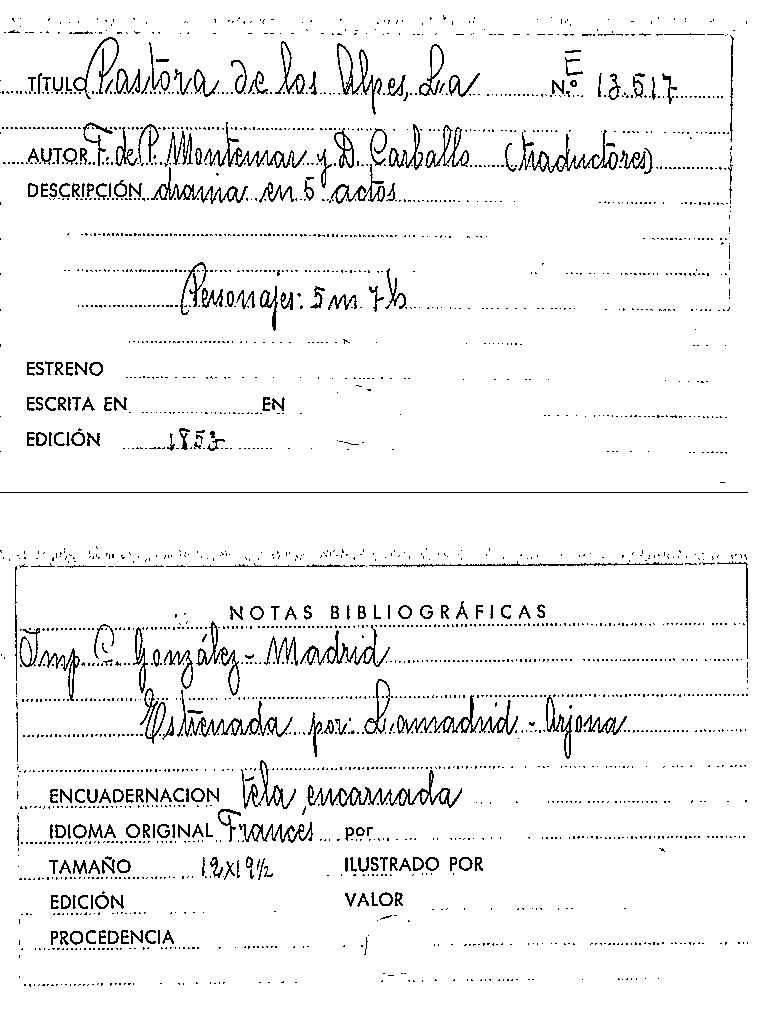 TÍTULO Pastora de los Alpes, La E N.º 13.517
AUTOR F. de P. Montemar y D. Carballo (traductores)
DESCRIPCIÓN drama en 5 actos
Personajes: 5 m 7 h
ESTRENO
ESCRITA EN EN
EDICIÓN 1853
NOTAS BIBLIOGRÁFICAS
Imp. C. González - Madrid
Estrenada por: Lamadrid - Arjona
ENCUADERNACION tela encarnada
IDIOMA ORIGINAL Francés por
TAMAÑO 12x19½ ILUSTRADO POR
EDICIÓN VALOR
PROCEDENCIA